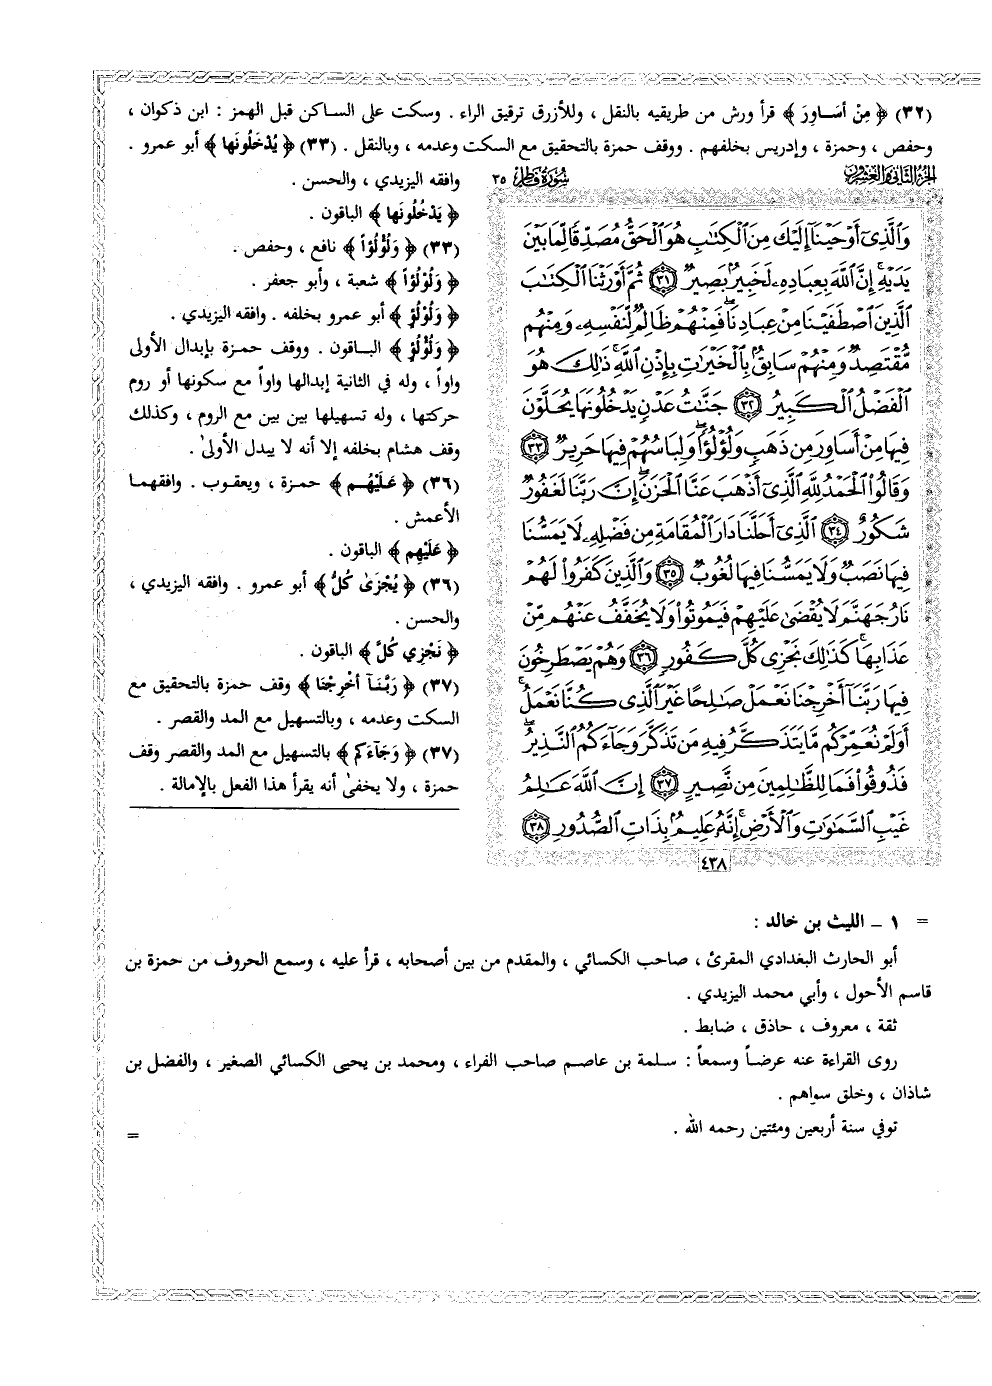 (٣٢) ﴿ مِنْ أَسَـاوِرَ ﴾ قرأ ورش من طريقيه بالنقل ، وللأزرق ترقيق الراء . وسكت على الساكن قبل الهمز : ابن ذكوان ،
وحفص ، وحمزة ، وإدريس بخلفهم . ووقف حمزة بالتحقيق مع السكت وعدمه ، وبالنقل . (٣٣) ﴿ يُدْخَلُونَها ﴾ أبو عمرو .
وافقه اليزيدي ، والحسن .
﴿ يَدْخُلُونَها ﴾ الباقون .
(٣٣) ﴿ وَلُؤْلُؤاً ﴾ نافع ، وحفص .
﴿ وَلُوْلُؤاً ﴾ شعبة ، وأبو جعفر .
﴿ وَلُولُؤٍ ﴾ أبو عمرو بخلفه . وافقه اليزيدي .
﴿ وَلُؤْلُؤٍ ﴾ البـاقون . ووقف حمـزة بإبدال الأولى
واواً ، وله في الثانية إبدالها واواً مع سكونها أو روم
حركتها ، وله تسهيلها بين بين مع الروم ، وكذلك
وقف هشام بخلفه إلا أنه لا يبدل الأولىٰ .
(٣٦) ﴿ عَلَيْهُـم ﴾ حمـزة ، ويعقـوب . وافقهمـا
الأعمش .
﴿ عَلَيْهِم ﴾ الباقون .
(٣٦) ﴿ يُجْزَىٰ كُلُّ ﴾ أبو عمرو . وافقه اليزيدي ،
والحسن .
﴿ نَجْزِي كُلَّ ﴾ الباقون .
(٣٧) ﴿ رَبَّنَـآ أَخْرِجْنَا ﴾ وقف حمزة بالتحقيق مع
السكت وعدمه ، وبالتسهيل مع المد والقصر .
(٣٧) ﴿ وَجَآءَكم ﴾ بالتسهيل مع المد والقصر وقف
حمزة ، ولا يخفىٰ أنه يقرأ هذا الفعل بالإمالة .
الجزء الثاني والعشرون سورة فاطر ٣٥
وَٱلَّذِىٓ أَوْحَيْنَآ إِلَيْكَ مِنَ ٱلْكِتَٰبِ هُوَ ٱلْحَقُّ مُصَدِّقًا لِّمَا بَيْنَ
يَدَيْهِ ۗ إِنَّ ٱللَّهَ بِعِبَادِهِۦ لَخَبِيرٌۢ بَصِيرٌ ٣١ ثُمَّ أَوْرَثْنَا ٱلْكِتَٰبَ
ٱلَّذِينَ ٱصْطَفَيْنَا مِنْ عِبَادِنَا ۖ فَمِنْهُمْ ظَالِمٌ لِّنَفْسِهِۦ وَمِنْهُم
مُّقْتَصِدٌ وَمِنْهُمْ سَابِقٌۢ بِٱلْخَيْرَٰتِ بِإِذْنِ ٱللَّهِ ۚ ذَٰلِكَ هُوَ
ٱلْفَضْلُ ٱلْكَبِيرُ ٣٢ جَنَّٰتُ عَدْنٍ يَدْخُلُونَهَا يُحَلَّوْنَ
فِيهَا مِنْ أَسَاوِرَ مِن ذَهَبٍ وَلُؤْلُؤًا ۖ وَلِبَاسُهُمْ فِيهَا حَرِيرٌ ٣٣
وَقَالُوا۟ ٱلْحَمْدُ لِلَّهِ ٱلَّذِىٓ أَذْهَبَ عَنَّا ٱلْحَزَنَ ۖ إِنَّ رَبَّنَا لَغَفُورٌ
شَكُورٌ ٣٤ ٱلَّذِىٓ أَحَلَّنَا دَارَ ٱلْمُقَامَةِ مِن فَضْلِهِۦ لَا يَمَسُّنَا
فِيهَا نَصَبٌ وَلَا يَمَسُّنَا فِيهَا لُغُوبٌ ٣٥ وَٱلَّذِينَ كَفَرُوا۟ لَهُمْ
نَارُ جَهَنَّمَ لَا يُقْضَىٰ عَلَيْهِمْ فَيَمُوتُوا۟ وَلَا يُخَفَّفُ عَنْهُم مِّنْ
عَذَابِهَا ۚ كَذَٰلِكَ نَجْزِى كُلَّ كَفُورٍ ٣٦ وَهُمْ يَصْطَرِخُونَ
فِيهَا رَبَّنَآ أَخْرِجْنَا نَعْمَلْ صَٰلِحًا غَيْرَ ٱلَّذِى كُنَّا نَعْمَلُ ۚ
أَوَلَمْ نُعَمِّرْكُم مَّا يَتَذَكَّرُ فِيهِ مَن تَذَكَّرَ وَجَآءَكُمُ ٱلنَّذِيرُ ۖ
فَذُوقُوا۟ فَمَا لِلظَّٰلِمِينَ مِن نَّصِيرٍ ٣٧ إِنَّ ٱللَّهَ عَٰلِمُ
غَيْبِ ٱلسَّمَٰوَٰتِ وَٱلْأَرْضِ ۚ إِنَّهُۥ عَلِيمٌۢ بِذَاتِ ٱلصُّدُورِ ٣٨
٤٣٨
= ١ ـ الليث بن خالد :
أبو الحارث البغدادي المقرئ ، صاحب الكسائي ، والمقدم من بين أصحابه ، قرأ عليه ، وسمع الحروف من حمزة بن
قاسم الأحول ، وأبي محمد اليزيدي .
ثقة ، معروف ، حاذق ، ضابط .
روى القراءة عنه عرضـاً وسمعاً : سـلمة بن عاصـم صاحب الفراء ، ومحمد بن يحيى الكسائي الصغير ، والفضل بن
شاذان ، وخلق سواهم .
توفي سنة أربعين ومئتين رحمه الله .
=